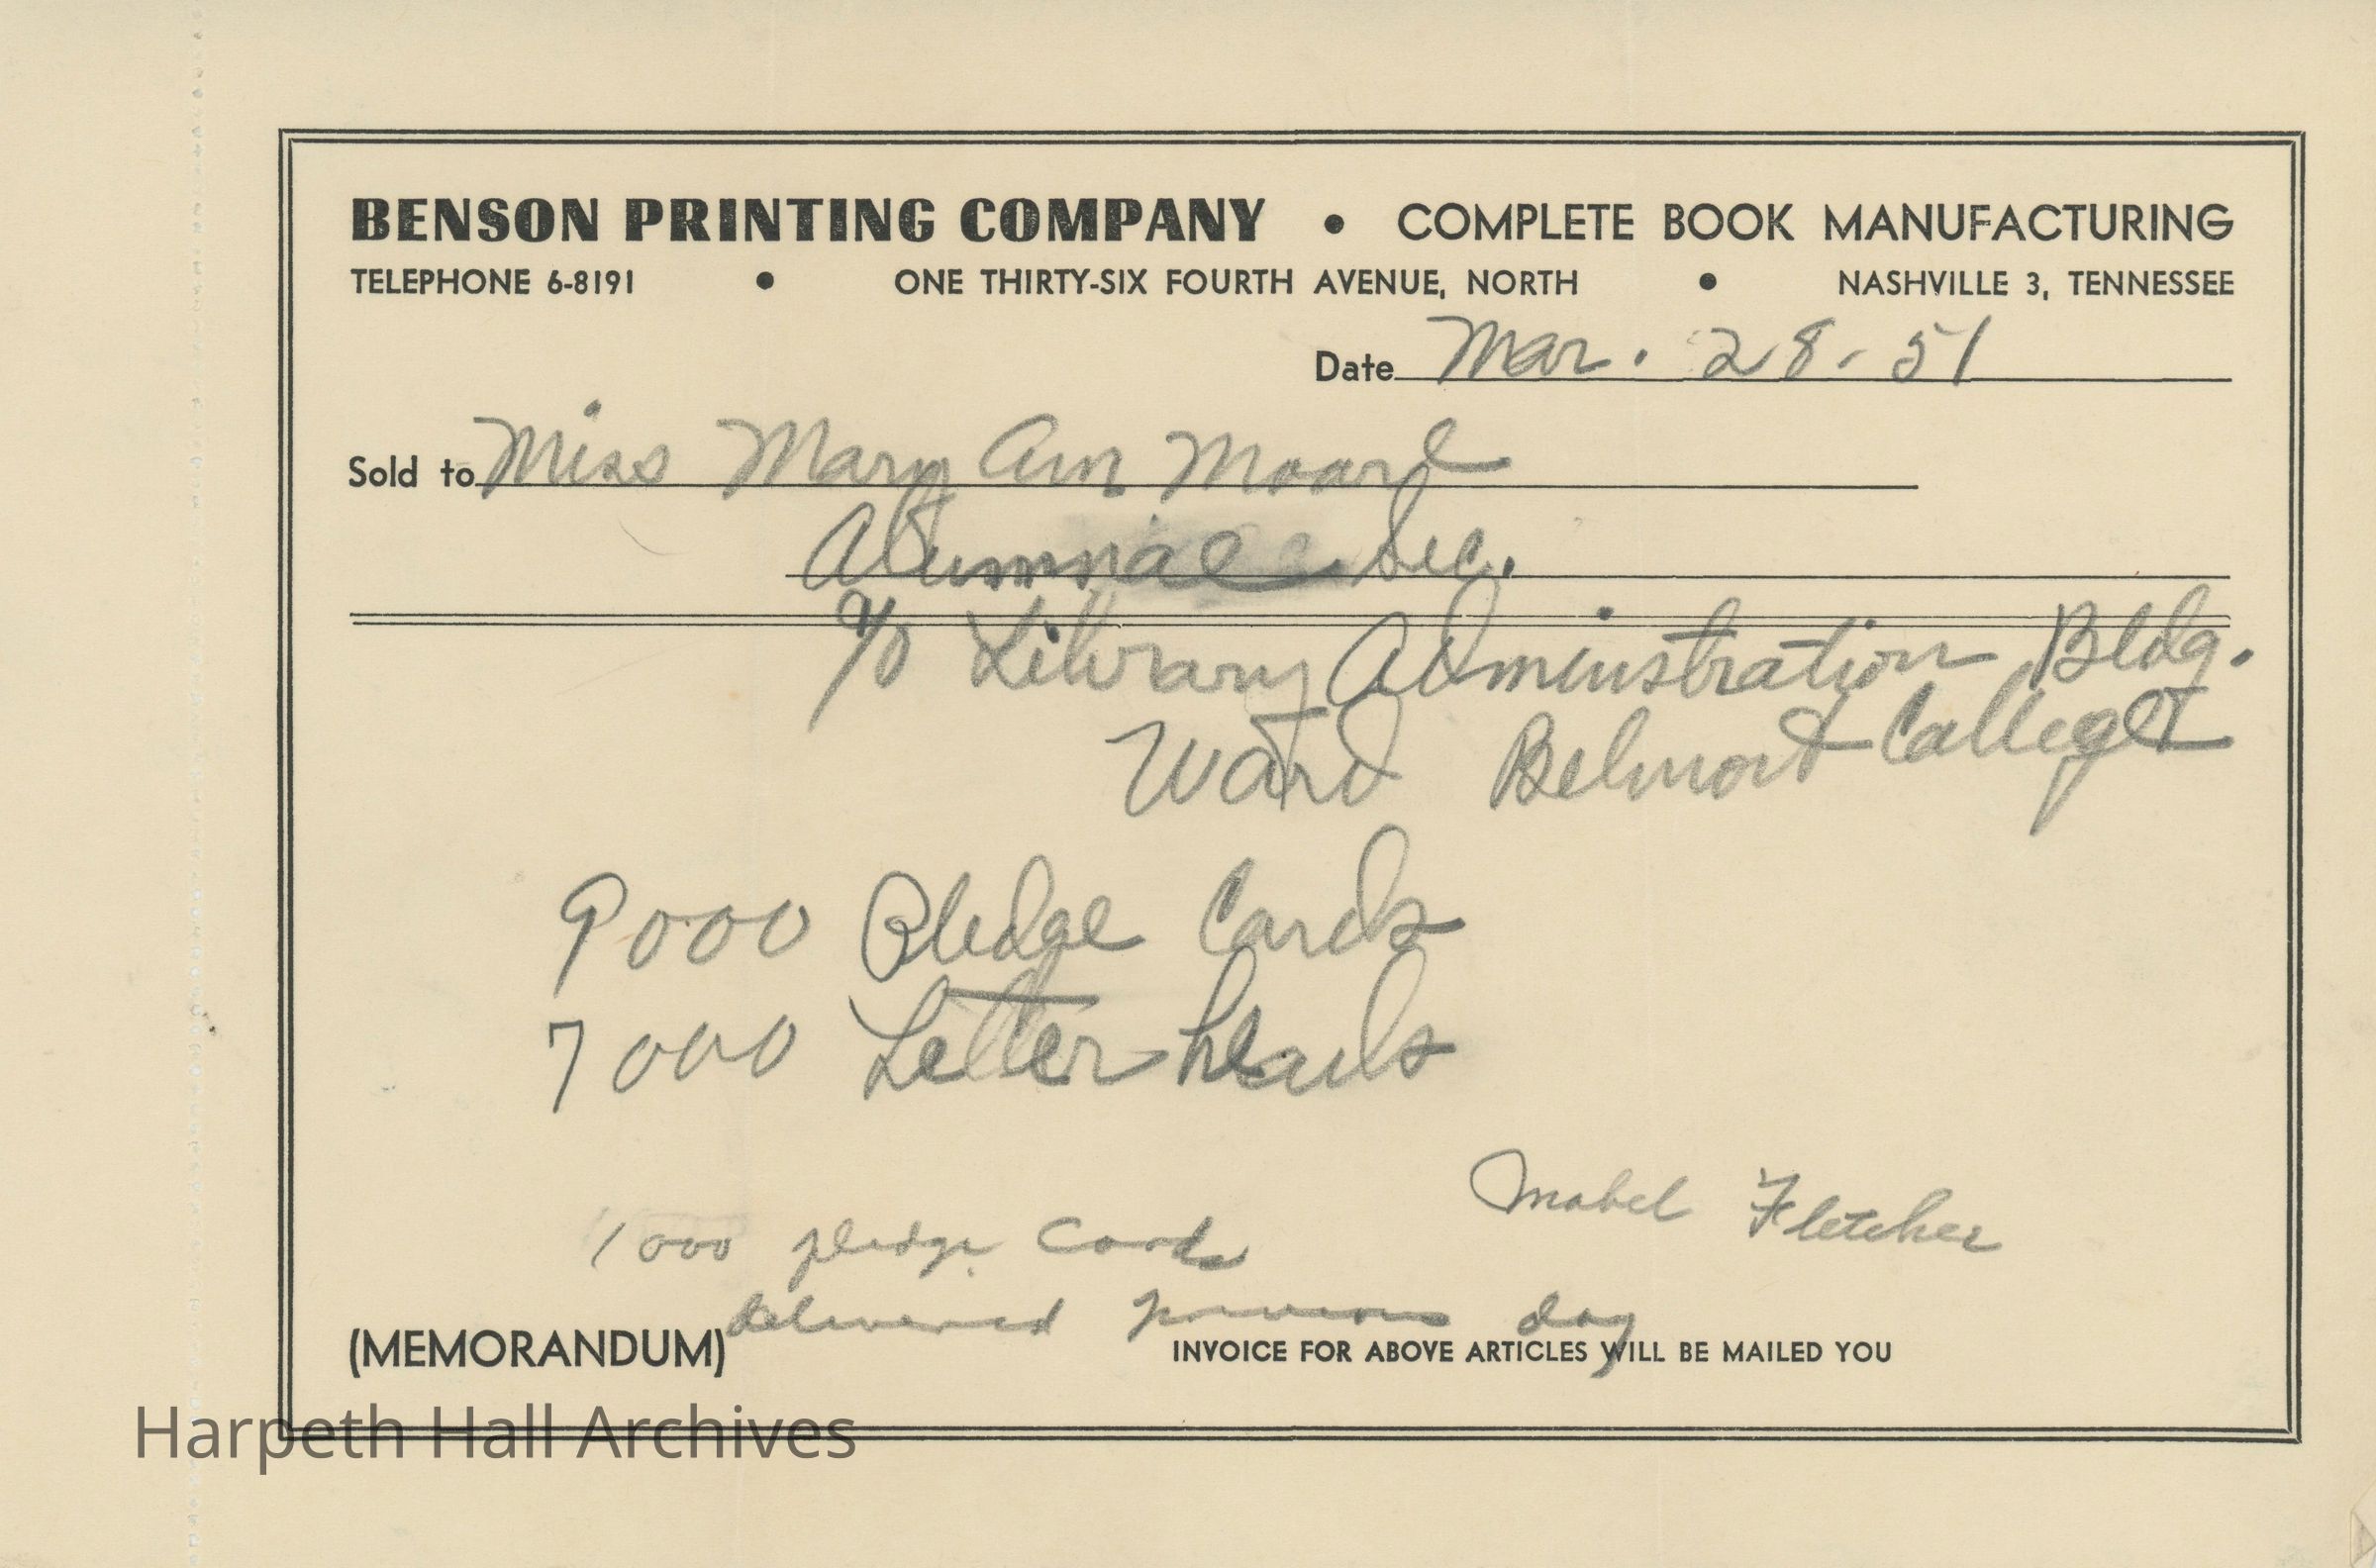 BENSON PRINTING COMPANY • COMPLETE BOOK MANUFACTURING
TELEPHONE 6-8191 • ONE THIRTY-SIX FOURTH AVENUE, NORTH • NASHVILLE 3, TENNESSEE
Date Mar. 28-51
Sold to Miss Mary Ann Moore
Alumnae Sec.
c/o Library Adminstration Bldg.
Ward Belmont College
9000 Pledge Cards
7000 Letter heads
Mabel Fletcher
1000 pledge Cards
delivered previous day
(MEMORANDUM) INVOICE FOR ABOVE ARTICLES WILL BE MAILED YOU
Harpeth Hall Archives